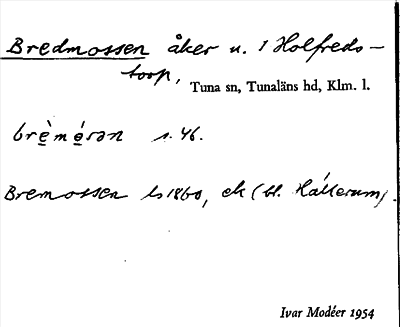 Bredmossen åker u. 1 Holfreds-
torp, Tuna sn, Tunaläns hd, Klm. l.
s. 46.
Bremossen ls 1860, ek (bl. Hállerum).
Ivar Modéer 1954